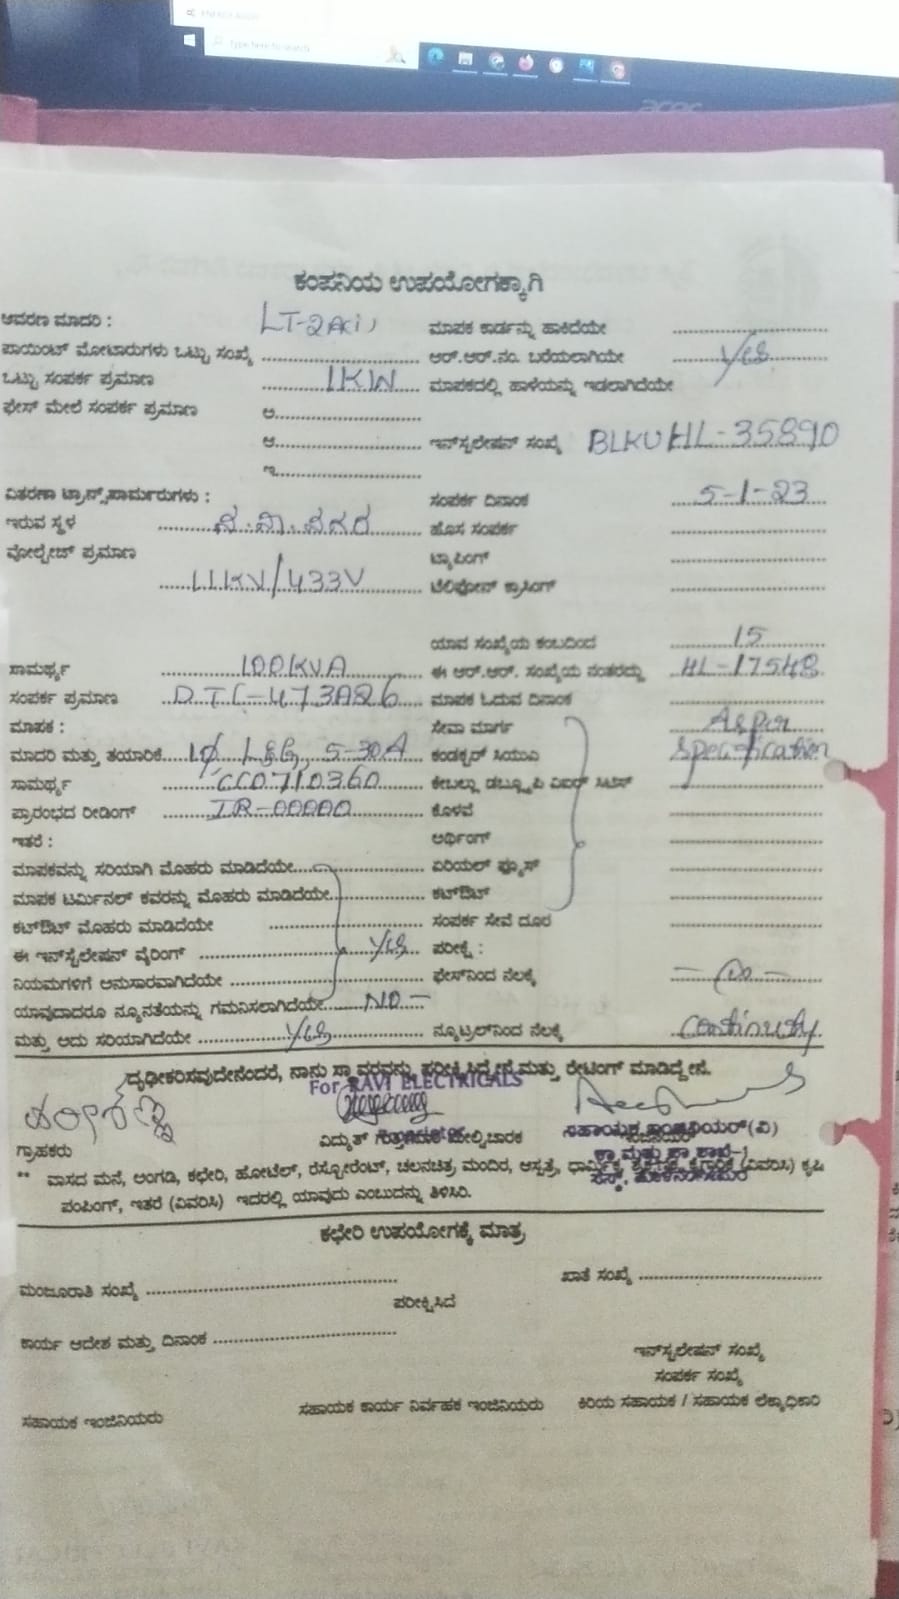 Type here to search
acer
ಕಂಪನಿಯ ಉಪಯೋಗಕ್ಕಾಗಿ
ಆವರಣ ಮಾದರಿ : LT-2A(i) ಮಾಪಕ ಕಾರ್ಡನ್ನು ಹಾಕಿದೆಯೇ
ಪಾಯಿಂಟ್ ಮೋಟಾರುಗಳು ಒಟ್ಟು ಸಂಖ್ಯೆ ಆರ್.ಆರ್.ನಂ. ಬರೆಯಲಾಗಿಯೇ Yes
ಒಟ್ಟು ಸಂಪರ್ಕ ಪ್ರಮಾಣ 1KW ಮಾಪಕದಲ್ಲಿ ಹಾಳೆಯನ್ನು ಇಡಲಾಗಿದೆಯೇ
ಫೇಸ್ ಮೇಲೆ ಸಂಪರ್ಕ ಪ್ರಮಾಣ ಅ
ಆ ಇನ್‌ಸ್ಟಲೇಷನ್ ಸಂಖ್ಯೆ BLKUHL-35890
ಇ
ವಿತರಣಾ ಟ್ರಾನ್ಸ್‌ಫಾರ್ಮರುಗಳು : ಸಂಪರ್ಕ ದಿನಾಂಕ 5-1-23
ಇರುವ ಸ್ಥಳ ಹೊಸ ಸಂಪರ್ಕ
ವೋಲ್ಟೇಜ್ ಪ್ರಮಾಣ ಟ್ಯಾಪಿಂಗ್
11KV/433V ಟೆಲಿಫೋನ್ ಕ್ರಾಸಿಂಗ್
ಯಾವ ಸಂಖ್ಯೆಯ ಕಂಬದಿಂದ 15
ಸಾಮರ್ಥ್ಯ 100KVA ಈ ಆರ್.ಆರ್. ಸಂಖ್ಯೆಯ ನಂತರದ್ದು HL-17548
ಸಂಪರ್ಕ ಪ್ರಮಾಣ DTC-473A26 ಮಾಪಕ ಓದುವ ದಿನಾಂಕ
ಮಾಪಕ : ಸೇವಾ ಮಾರ್ಗ As per
ಮಾದರಿ ಮತ್ತು ತಯಾರಿಕೆ 1Ø L&G, 5-30A ಕಂಡಕ್ಟರ್ ಸಿಯುಎ Specification
ಸಾಮರ್ಥ್ಯ CC0710360 ಕೇಬಲ್ಲು ಡಬ್ಲ್ಯೂಪಿ
ಪ್ರಾರಂಭದ ರೀಡಿಂಗ್ IR-00000 ಕೊಳವೆ
ಇತರೆ : ಅರ್ಥಿಂಗ್
ಮಾಪಕವನ್ನು ಸರಿಯಾಗಿ ಮೊಹರು ಮಾಡಿದೆಯೇ ಏರಿಯಲ್ ಫ್ಯೂಸ್
ಮಾಪಕ ಟರ್ಮಿನಲ್ ಕವರನ್ನು ಮೊಹರು ಮಾಡಿದೆಯೇ ಕಟ್‌ಔಟ್
ಕಟ್‌ಔಟ್ ಮೊಹರು ಮಾಡಿದೆಯೇ ಸಂಪರ್ಕ ಸೇವೆ ದೂರ
ಈ ಇನ್‌ಸ್ಟೆಲೇಷನ್ ವೈರಿಂಗ್ Yes ಪರೀಕ್ಷೆ :
ನಿಯಮಗಳಿಗೆ ಅನುಸಾರವಾಗಿದೆಯೇ ಫೇಸ್‌ನಿಂದ ನೆಲಕ್ಕೆ
ಯಾವುದಾದರೂ ನ್ಯೂನತೆಯನ್ನು ಗಮನಿಸಲಾಗಿದೆಯೇ NO -
ಮತ್ತು ಅದು ಸರಿಯಾಗಿದೆಯೇ Yes ನ್ಯೂಟ್ರಲ್‌ನಿಂದ ನೆಲಕ್ಕೆ Continuity
ದೃಢೀಕರಿಸವುದೇನೆಂದರೆ, ನಾನು ಸ್ಥಾವರವನ್ನು ಪರೀಕ್ಷಿಸಿದ್ದೇನೆ ಮತ್ತು ರೇಟಿಂಗ್ ಮಾಡಿದ್ದೇನೆ.
For RAVI ELECTRICALS
ಗ್ರಾಹಕರು ವಿದ್ಯುತ್ ಗುತ್ತಿಗೆದಾರ ಮೇಲ್ವಿಚಾರಕ ಸಹಾಯಕ ಇಂಜಿನಿಯರ್(ವಿ)
** ವಾಸದ ಮನೆ, ಅಂಗಡಿ, ಕಛೇರಿ, ಹೋಟೆಲ್, ರೆಸ್ಟೋರೆಂಟ್, ಚಲನಚಿತ್ರ ಮಂದಿರ, ಆಸ್ಪತ್ರೆ, ಧಾರ್ಮಿಕ, ಶೈಕ್ಷಣಿಕ, ಕೈಗಾರಿಕೆ (ವಿವರಿಸಿ) ಕೃಷಿ
ಪಂಪಿಂಗ್, ಇತರೆ (ವಿವರಿಸಿ) ಇದರಲ್ಲಿ ಯಾವುದು ಎಂಬುದನ್ನು ತಿಳಿಸಿರಿ.
ಕಛೇರಿ ಉಪಯೋಗಕ್ಕೆ ಮಾತ್ರ
ಮಂಜೂರಾತಿ ಸಂಖ್ಯೆ ಖಾತೆ ಸಂಖ್ಯೆ
ಪರೀಕ್ಷಿಸಿದೆ
ಕಾರ್ಯ ಆದೇಶ ಮತ್ತು ದಿನಾಂಕ
ಇನ್‌ಸ್ಟಲೇಷನ್ ಸಂಖ್ಯೆ
ಸಂಪರ್ಕ ಸಂಖ್ಯೆ
ಸಹಾಯಕ ಇಂಜಿನಿಯರು ಸಹಾಯಕ ಕಾರ್ಯ ನಿರ್ವಹಕ ಇಂಜಿನಿಯರು ಕಿರಿಯ ಸಹಾಯಕ / ಸಹಾಯಕ ಲೆಕ್ಕಾಧಿಕಾರಿ